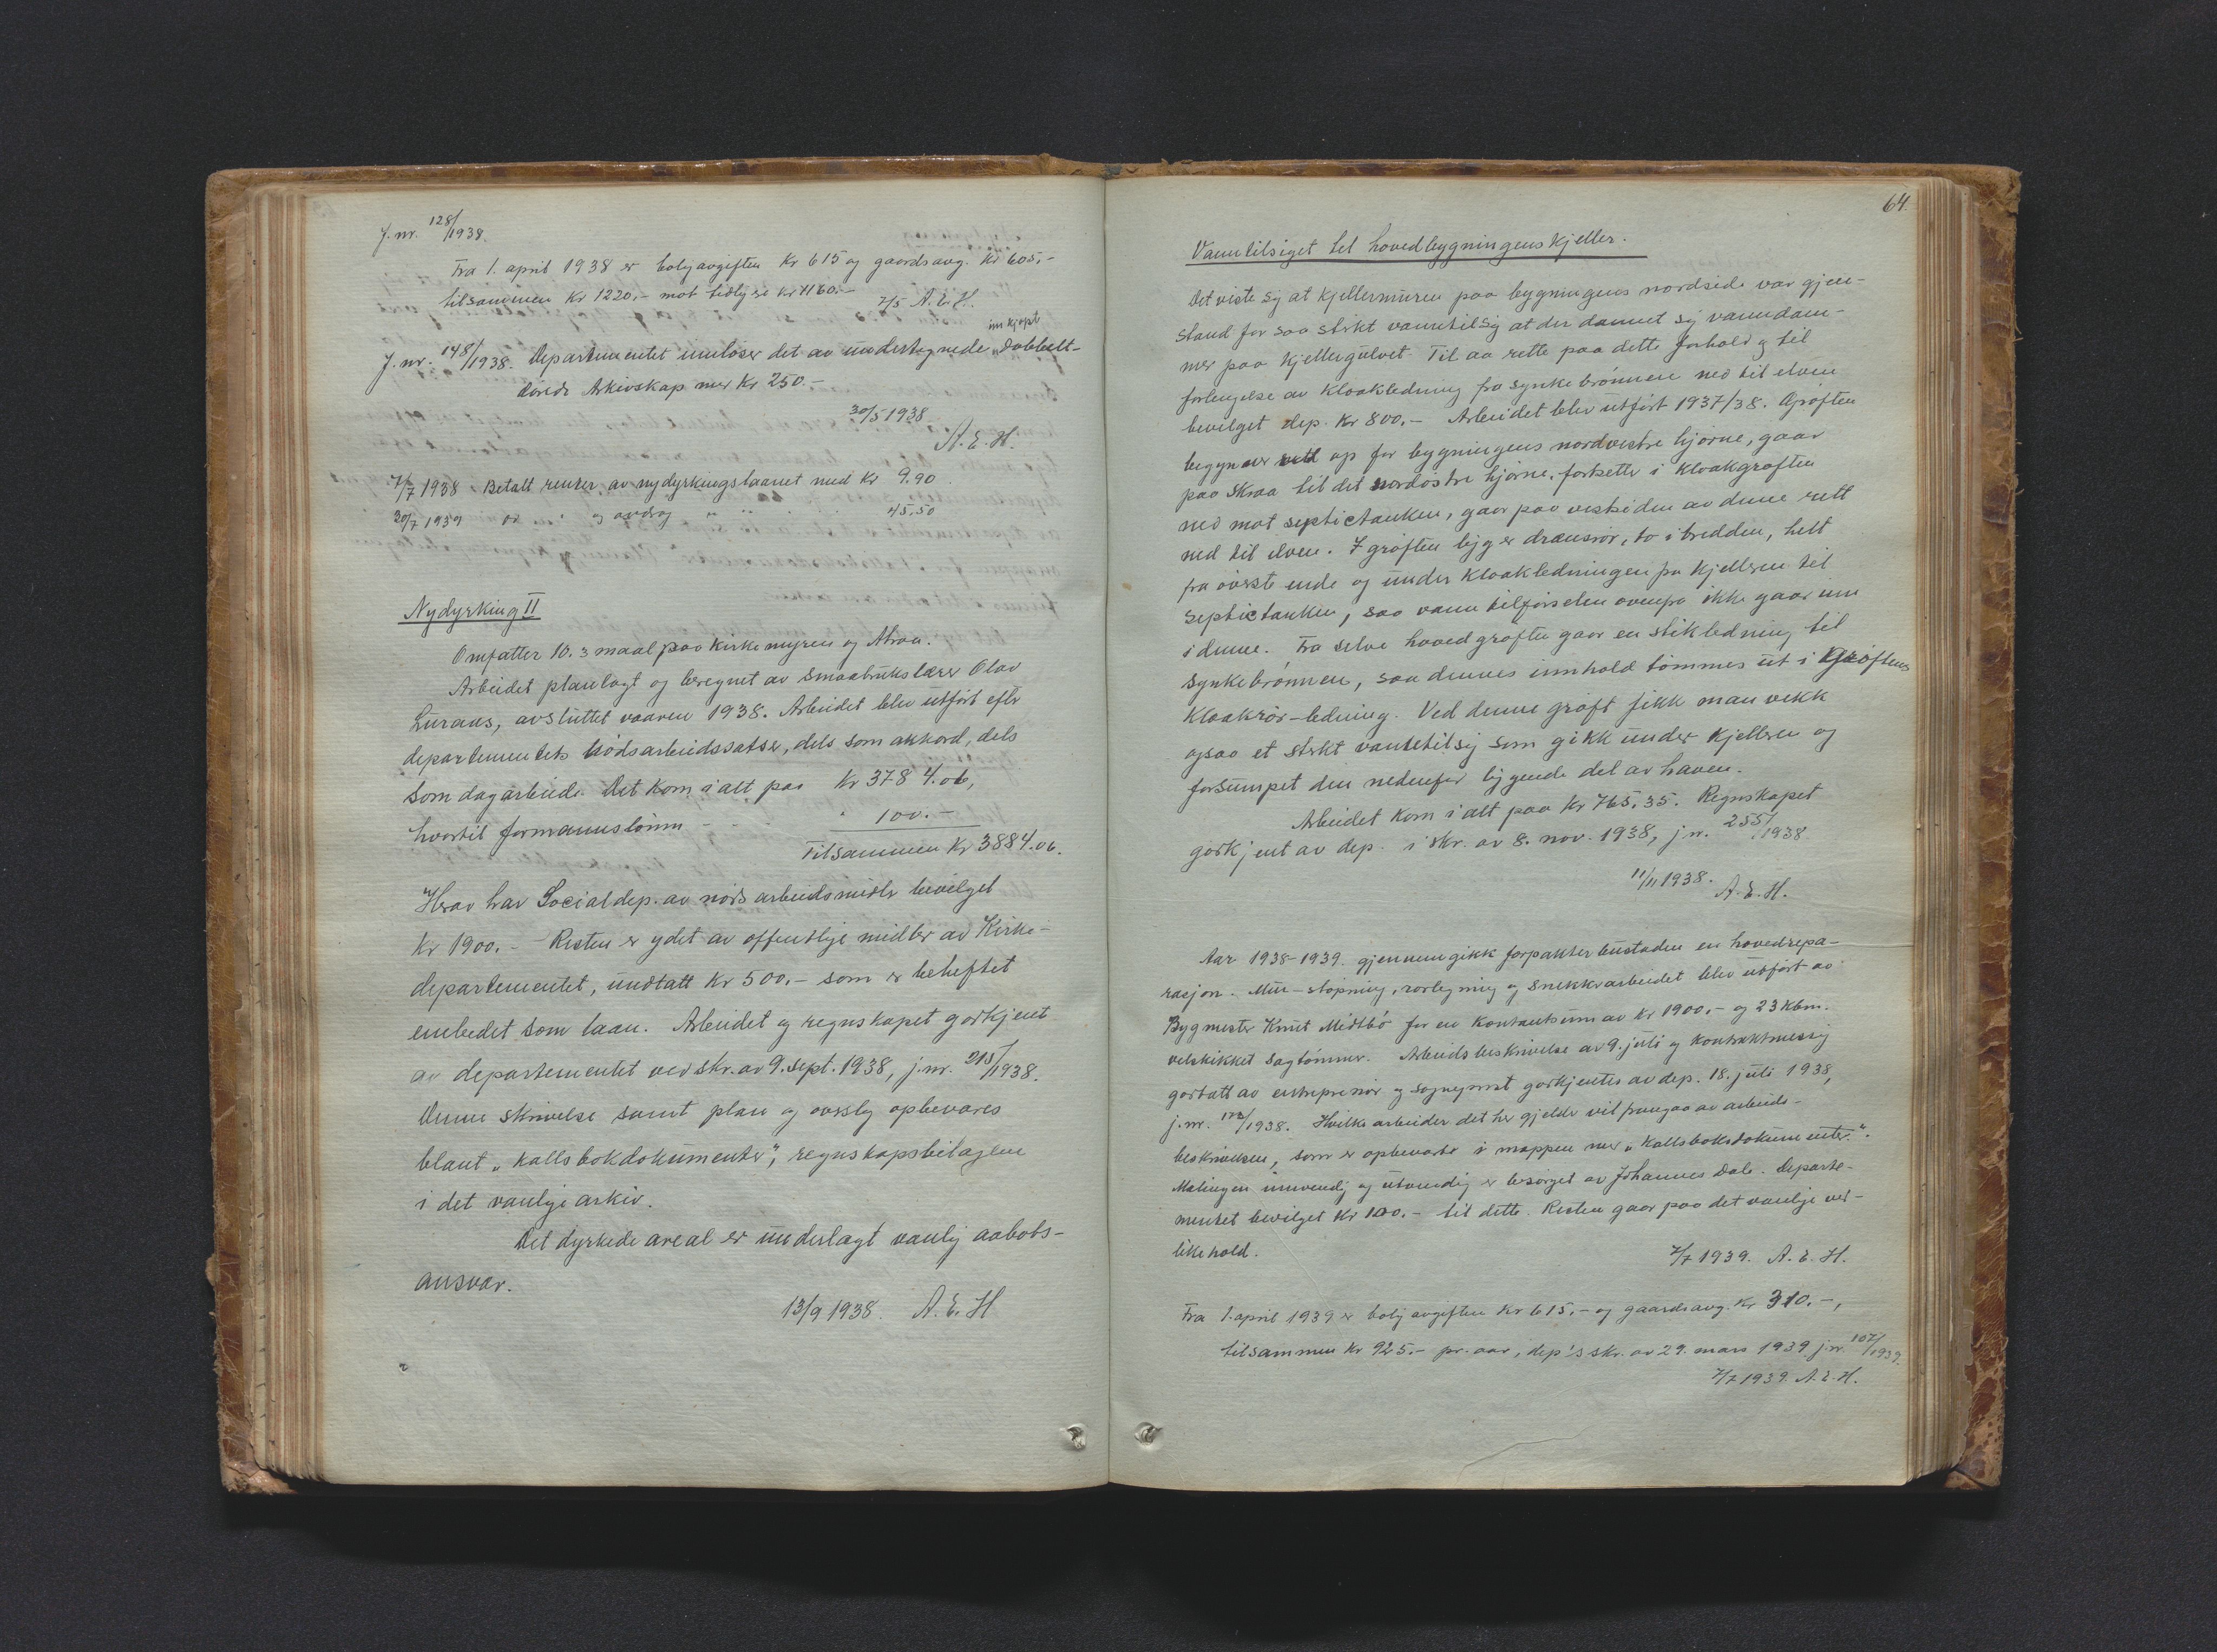 J. nr. 128/1938.
Fra 1. april 1938 er boligavgiften kr 615 og gaardsavg. kr 605,-
tilsammen kr 1220,- mot tidligere kr 1160.-
7/5 A. E. H.
innkjøpt
J. nr. 148/1938. Departementet innløser det av undertegnede "Dobbelt-
Arkivskap mer kr 250.-
30/5 1938
A. E. H.
7/7 1938 Betalt renter av nydyrkingslaanet med kr 9.90
20/7 1939 og avdrag 45,50
Nydyrking II
Omfatter 10.3 maal paa Kirkemyren og
Arbeidet planlagt og beregnet av smaabrukslærer Olav
Luraas, avsluttet vaaren 1938. Arbeidet blev utført efter
departementets nødsarbeidssatser, dels som akkord, dels
som dagarbeide. Det kom i alt paa kr 3784.06,
hvortil formannslønn - - " 100.-
Tilsammen kr 3884.06.
Herav har Socialdep. av nødsarbeidsmidler bevilget
kr 1900.- Resten er ydet av offentlige midler av Kirke-
departementet, undtatt kr 500,- som er beheftet
embedet som laan. Arbeidet og regnskapet godkjent
av departementet ved skr. av 9. sept. 1938, j. nr. 215/1938.
Denne skrivelse samt plan og overslag opbevares
blant "Kallsbokdokumenter", regnskapsbilagene
i det vanlige arkiv.
Det dyrkede areal er underlagt vanlig aabots-
ansvar.
13/9 1938. A. E. H
64.
Vanntilsiget til hovedbygningens kjeller.
Det viste sig at kjellermuren paa bygningens nordside var gjen-
stand for saa sterkt vanntilsig at der dannet sig vanndam-
mer paa kjellergulvet. Til aa rette paa dette forhold og til
forlengelse av kloakledning fra synkebrønnen ned til elven
bevilget dep. kr 800,- Arbeidet blev utført 1937/38. Grøften
begynner op for bygningens nordvestre hjørne, gaar
paa skraa til det nordøstre hjørne, fortsetter i kloakgrøften
ned mot septictanken, gaar paa vestsiden av denne rett
ned til elven. I grøften ligger drænsrør, to i bredden, helt
fra øverste ende og under kloakledningen fra kjelleren til
septictanken, saa vanntilførselen ovenfra ikke gaar inn
i denne. Fra selve hovedgrøften gaar en stikledning til
synkebrønnen, saa dennes innhold tømmes ut i Grøftens
Kloakrør-ledning. Ved denne grøft fikk man vekk
ogsaa et sterkt vanntilsig som gikk under kjelleren og
forsumpet den nedenfor liggende del av haven.
Arbeidet kom i alt paa kr 765,35. Regnskapet
godkjent av dep. i skr. av 8. nov. 1938, j nr. 255/1938
11/11 1938. A. E. H.
Aar 1938-1939. gjennemgikk forpakterbustaden en hovedrepa-
rasjon. Mur-støpning, rørlegning og snekkerarbeidet blev utført av
Bygmester Knut Midtbø for en kontantsum av kr 1900,- og 23 kbm.
velskikket sagtømmer. Arbeidsbeskrivelse av 9. juli og kontraktmessig
godtatt av entreprenør og sogneprest godkjentes av dep. 18. juli 1938,
j. nr. /1938. Hvilke arbeider det her gjelder vil fremgaa av arbeids-
beskrivelsen, som er opbevaret i mappen mer "Kallsboksdokumenter".
Malingen innvendig og utvendig er besørget av Johannes Dale. Departe-
mentet bevilget kr 100.- til dette. Resten gaar paa det vanlige ved-
likehold.
7/7 1939. A. E. H.
Fra 1. april 1939 er boligavgiften kr 615.- og gaardsavg. kr 310.-,
tilsammen kr 925.- pr. aar, dep's skr. av 29. mars 1939 j. nr. 107/1939.
7/7 1939. A. E. H.